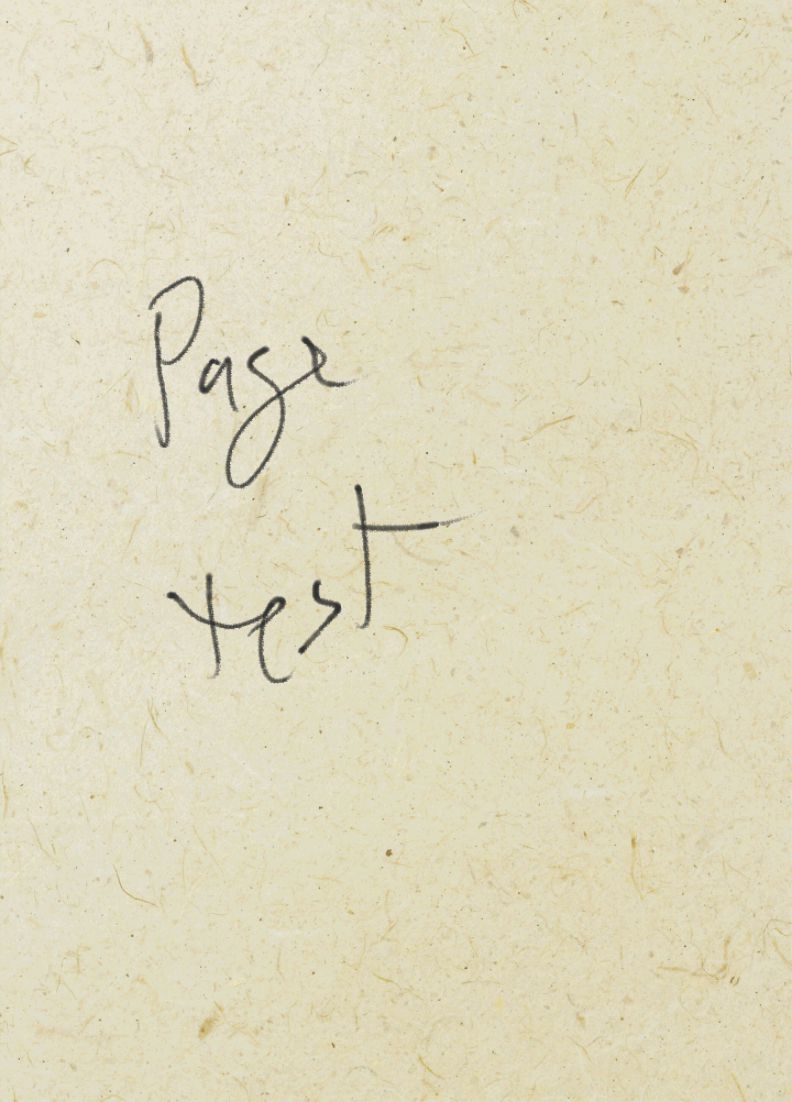 Page
test